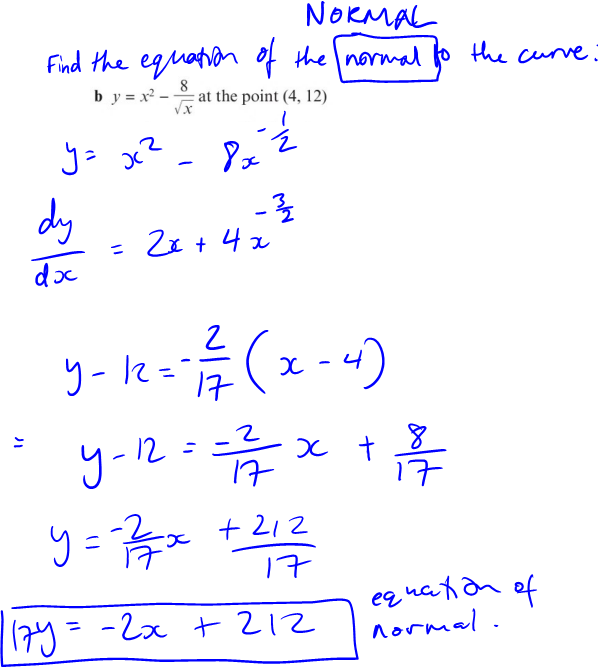 NORMAL
Find the equation of the normal to the curve:
b y = x² − 8/√x at the point (4, 12)
y = x² - 8x^(-1/2)
dy/dx = 2x + 4x^(-3/2)
y - 12 = -2/17 (x - 4)
= y - 12 = -2/17 x + 8/17
y = -2/17 x + 212/17
17y = -2x + 212
equation of
normal.